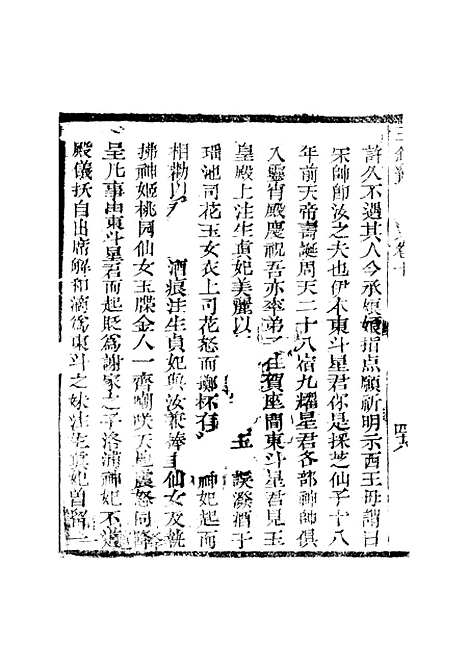 許久不遇其人今承娘娘指点願祈明示西王毋謂曰
宋帥卽汝之夫也伊本東斗星君你是採芝仙子十八
年前天帝壽誕周天二十八宿九耀星君各部神帥俱
入靈宵殿慶祝吾亦率弟子往賀座間東斗星君見玉
皇殿上注生貞妃美麗以 玉 誤潑酒于
瑶池司花玉女衣上司花怒而擲杯在 神妃起而
相勸以 酒痕注生貞妃與汝兼捧 仙女及
拂神姬桃园仙女玉牒金人一齊嘲咲天 震怒同降
呈凡事由東斗星君而起貶爲謝家之子洛浦神妃不
殿儀抚自出席解和滴爲東斗之妹注生真妃曾醉一